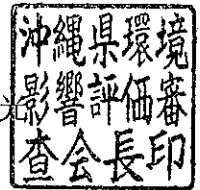 沖縄県環境
影響評価審
査会長印
光